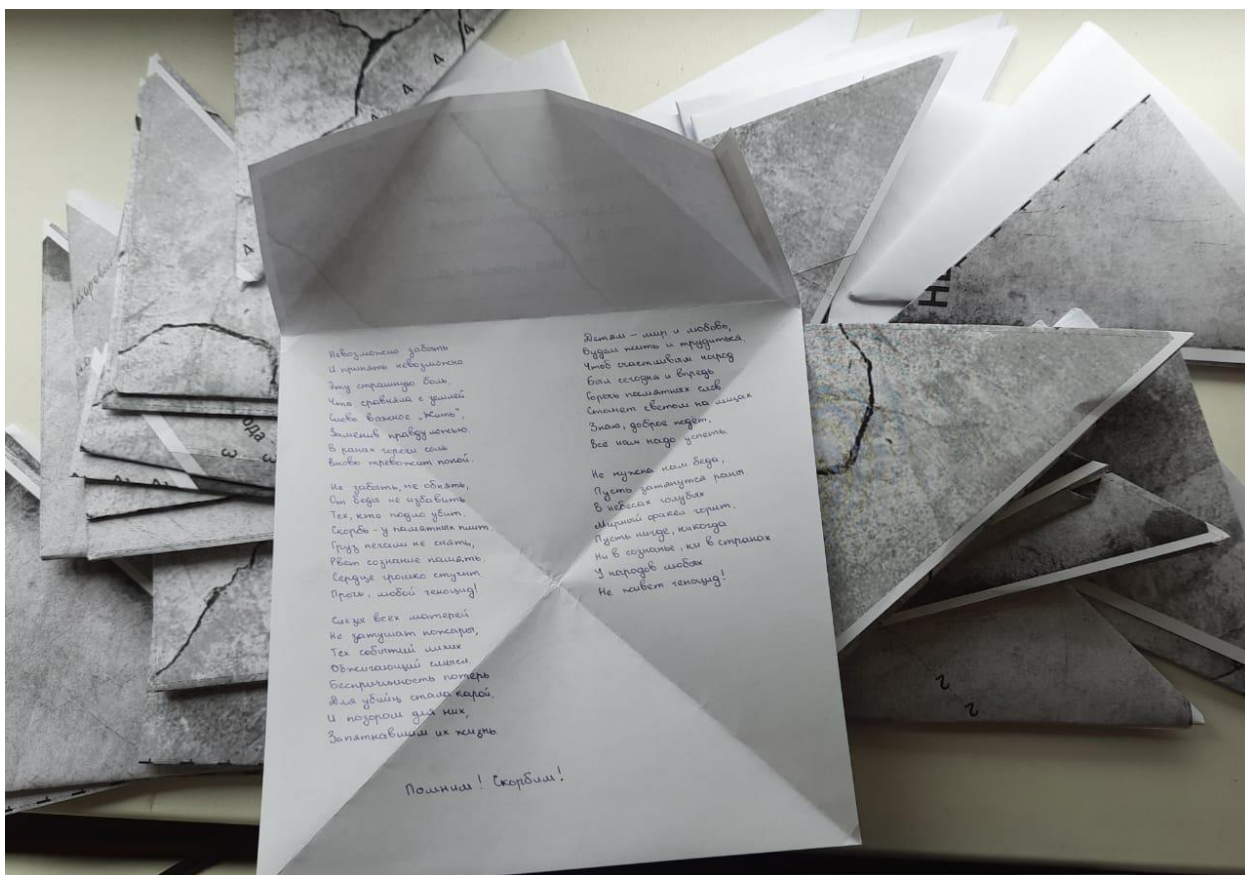 Невозможно забыть
И принять невозможно
Эту страшную боль.
Что сравняла с землей
Слово важное „Жить",
Заменив правду ложью.
В ранах горечи соль
Вновь тревожит покой.
Не забыть, не обнять,
От беды не избавить
Тех, кто подло убит.
Скорбь - у памятных плит
Груз печали не снять,
Рвет сознание память.
Сердце громко стучит
Прочь, любой геноцид!
Слезы всех матерей
Не затушат пожары,
Тех событий лихих
Обжигающий смысл.
Беспричинность потерь
Для убийц стала карой,
И позором для них,
Запятнавшим их жизнь
Детям - мир и любовь,
Будем жить и трудиться,
Чтоб счастливым народ
Был сегодня и впредь
Горечь памятных слов
Станет светом на лицах
Знаю, доброе ждёт,
Всё нам надо успеть.
Не нужна нам беда,
Пусть затянутся раны
В небесах голубях
Мирный факел горит.
Пусть нигде, никогда
Ни в сознанье, ни в странах
У народов любых
Не живет геноцид!
Помним! Скорбим!
ода
3
3
4
4
4
4
2
2